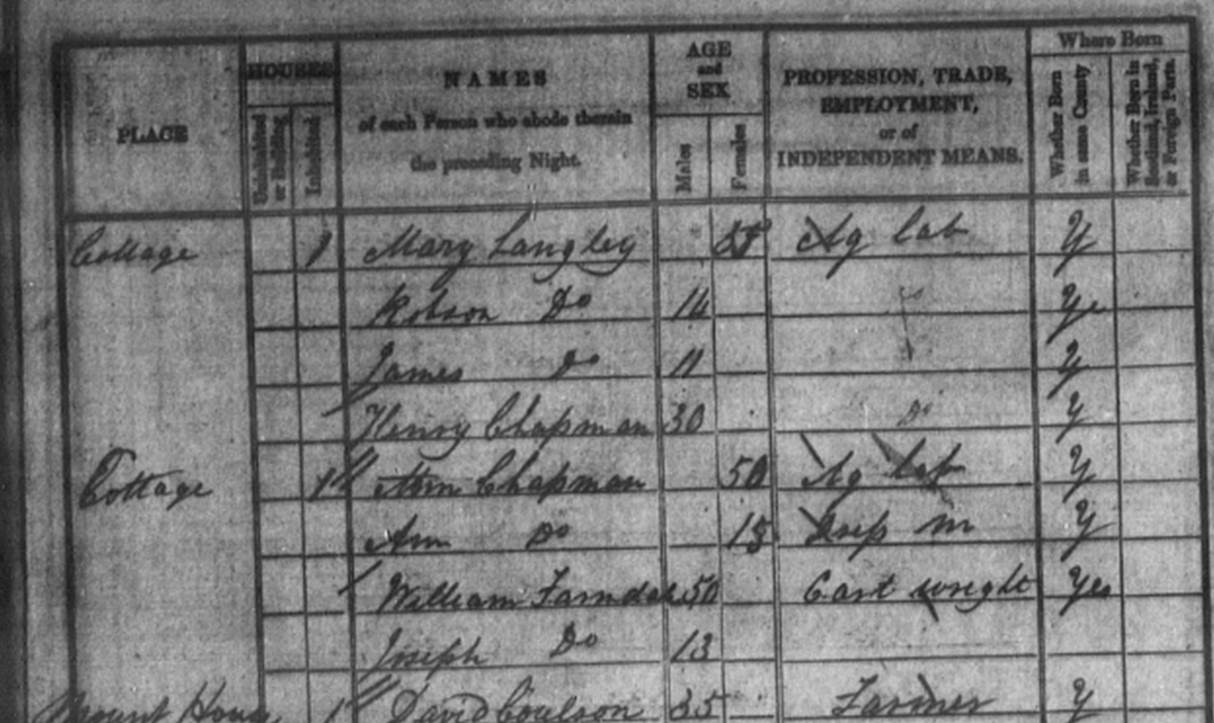 PLACE
HOUSES
Uninhabited or Building
Inhabited
NAMES
of each Person who abode therein
the preceding Night.
AGE and SEX
Males
Females
PROFESSION, TRADE,
EMPLOYMENT,
or of
INDEPENDENT MEANS.
Where Born
Whether Born in same County
Whether Born in Scotland, Ireland, or Foreign Parts.
Cottage 1 Mary Langley Ag lab Y
Robson Do 14
James Do 11 Y
Henry Chapman 30 Do Y
Cottage 1 Ann Chapman 50 Ag lab Y
Ann Do 15 Y
William Farndale 50 Cart wright Yes
Joseph Do 13
Mount House 1 David Coulson 35 Farmer Y